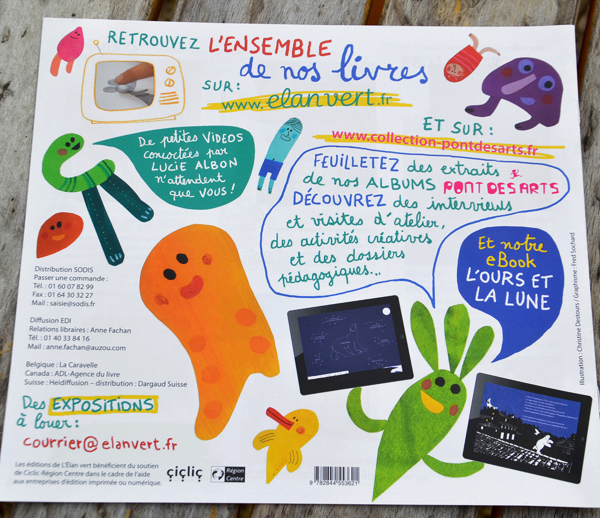 RETROUVEZ L'ENSEMBLE
de nos livres
SUR :
www.elanvert.fr
ET SUR :
www.collection-pontdesarts.fr
De petites VIDÉOS
concoctées par
LUCIE ALBON
n'attendent
que VOUS !
FEUILLETEZ des extraits
de nos ALBUMS PONT DES ARTS
DÉCOUVREZ des interviews
et visites d'atelier,
des activités créatives
et des dossiers
pédagogiques...
Et notre
eBook
L'OURS ET
LA LUNE
Distribution SODIS
Passer une commande :
Tél. : 01 60 07 82 99
Fax : 01 64 30 32 27
Mail : saisie@sodis.fr
Diffusion EDI
Relations libraires : Anne Fachan
Tél. : 01 40 33 84 16
Mail : anne.fachan@auzou.com
Belgique : La Caravelle
Canada : ADL-Agence du livre
Suisse : Heidiffusion – distribution : Dargaud Suisse
Des EXPOSITIONS
à louer :
courrier@elanvert.fr
Les éditions de L'Élan vert bénéficient du soutien
de Ciclic-Région Centre dans le cadre de l'aide
aux entreprises d'édition imprimée ou numérique.
ciclic
Région
Centre
9 782844 553621
Illustration : Christine Destours / Graphisme : Fred Sochard